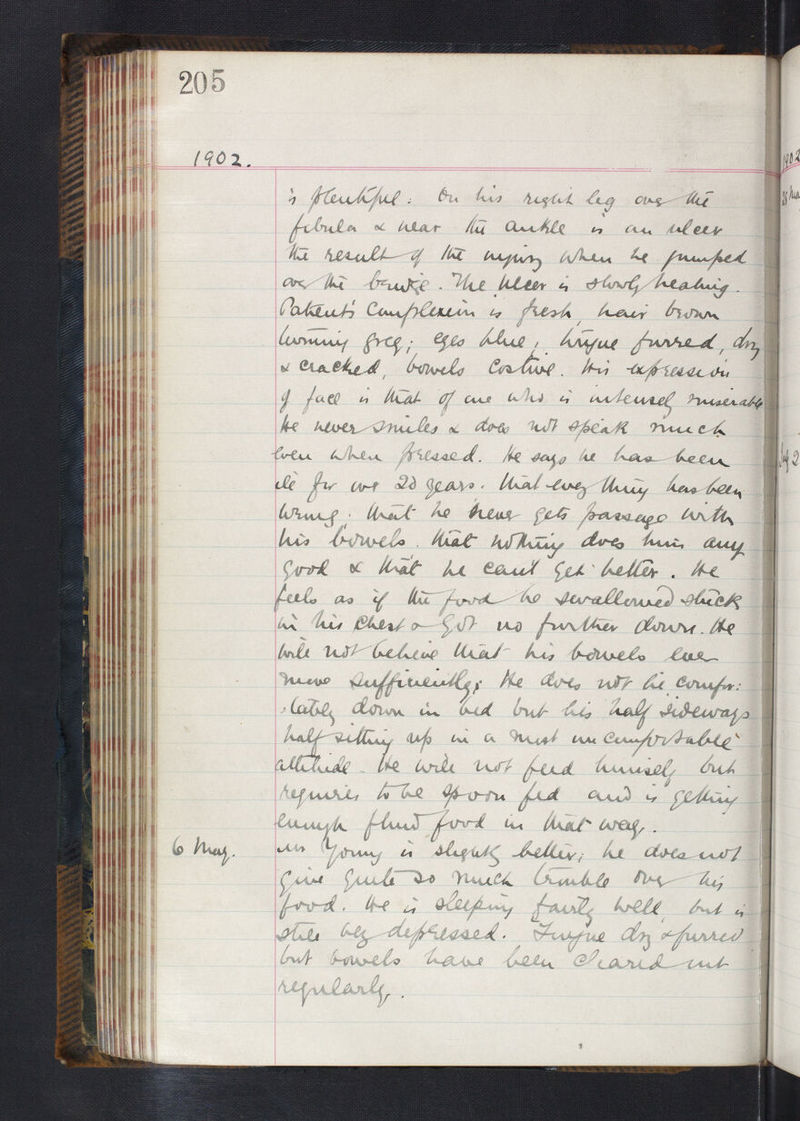 205
1902.
is plentiful. On his right leg over the
fibula & near the ankle is an ulcer
the result of the injury when he jumped
over the bridge. The ulcer is slowly healing.
Patient's complexion is fresh, hair brown
turning grey; eyes blue; tongue furred, dry
& cracked, bowels costive. His expression
of face is that of one who is intensely miserable
He never smiles & does not speak much
even when pressed. He says he has been
ill for over 20 years. that every thing has been
wrong. that he never gets passage with
his bowels. that nothing does him any
good & that he can't get better. He
feels as if the food he swallowed stuck
in his chest & got no further down. He
will not believe that his bowels ever
move sufficiently; He does not lie comfor:
:tably down in bed but lies half sideways
half sitting up in a most uncomfortable
attitude. He will not feed himself but
requires to be spoon fed and is getting
enough fluid food in that way.
6 May. Mr Young is slightly better; he does not
give quite so much trouble over his
food. He is sleeping fairly well but is
still very depressed. Tongue dry & furred
but bowels have been cleared out
regularly.
1902